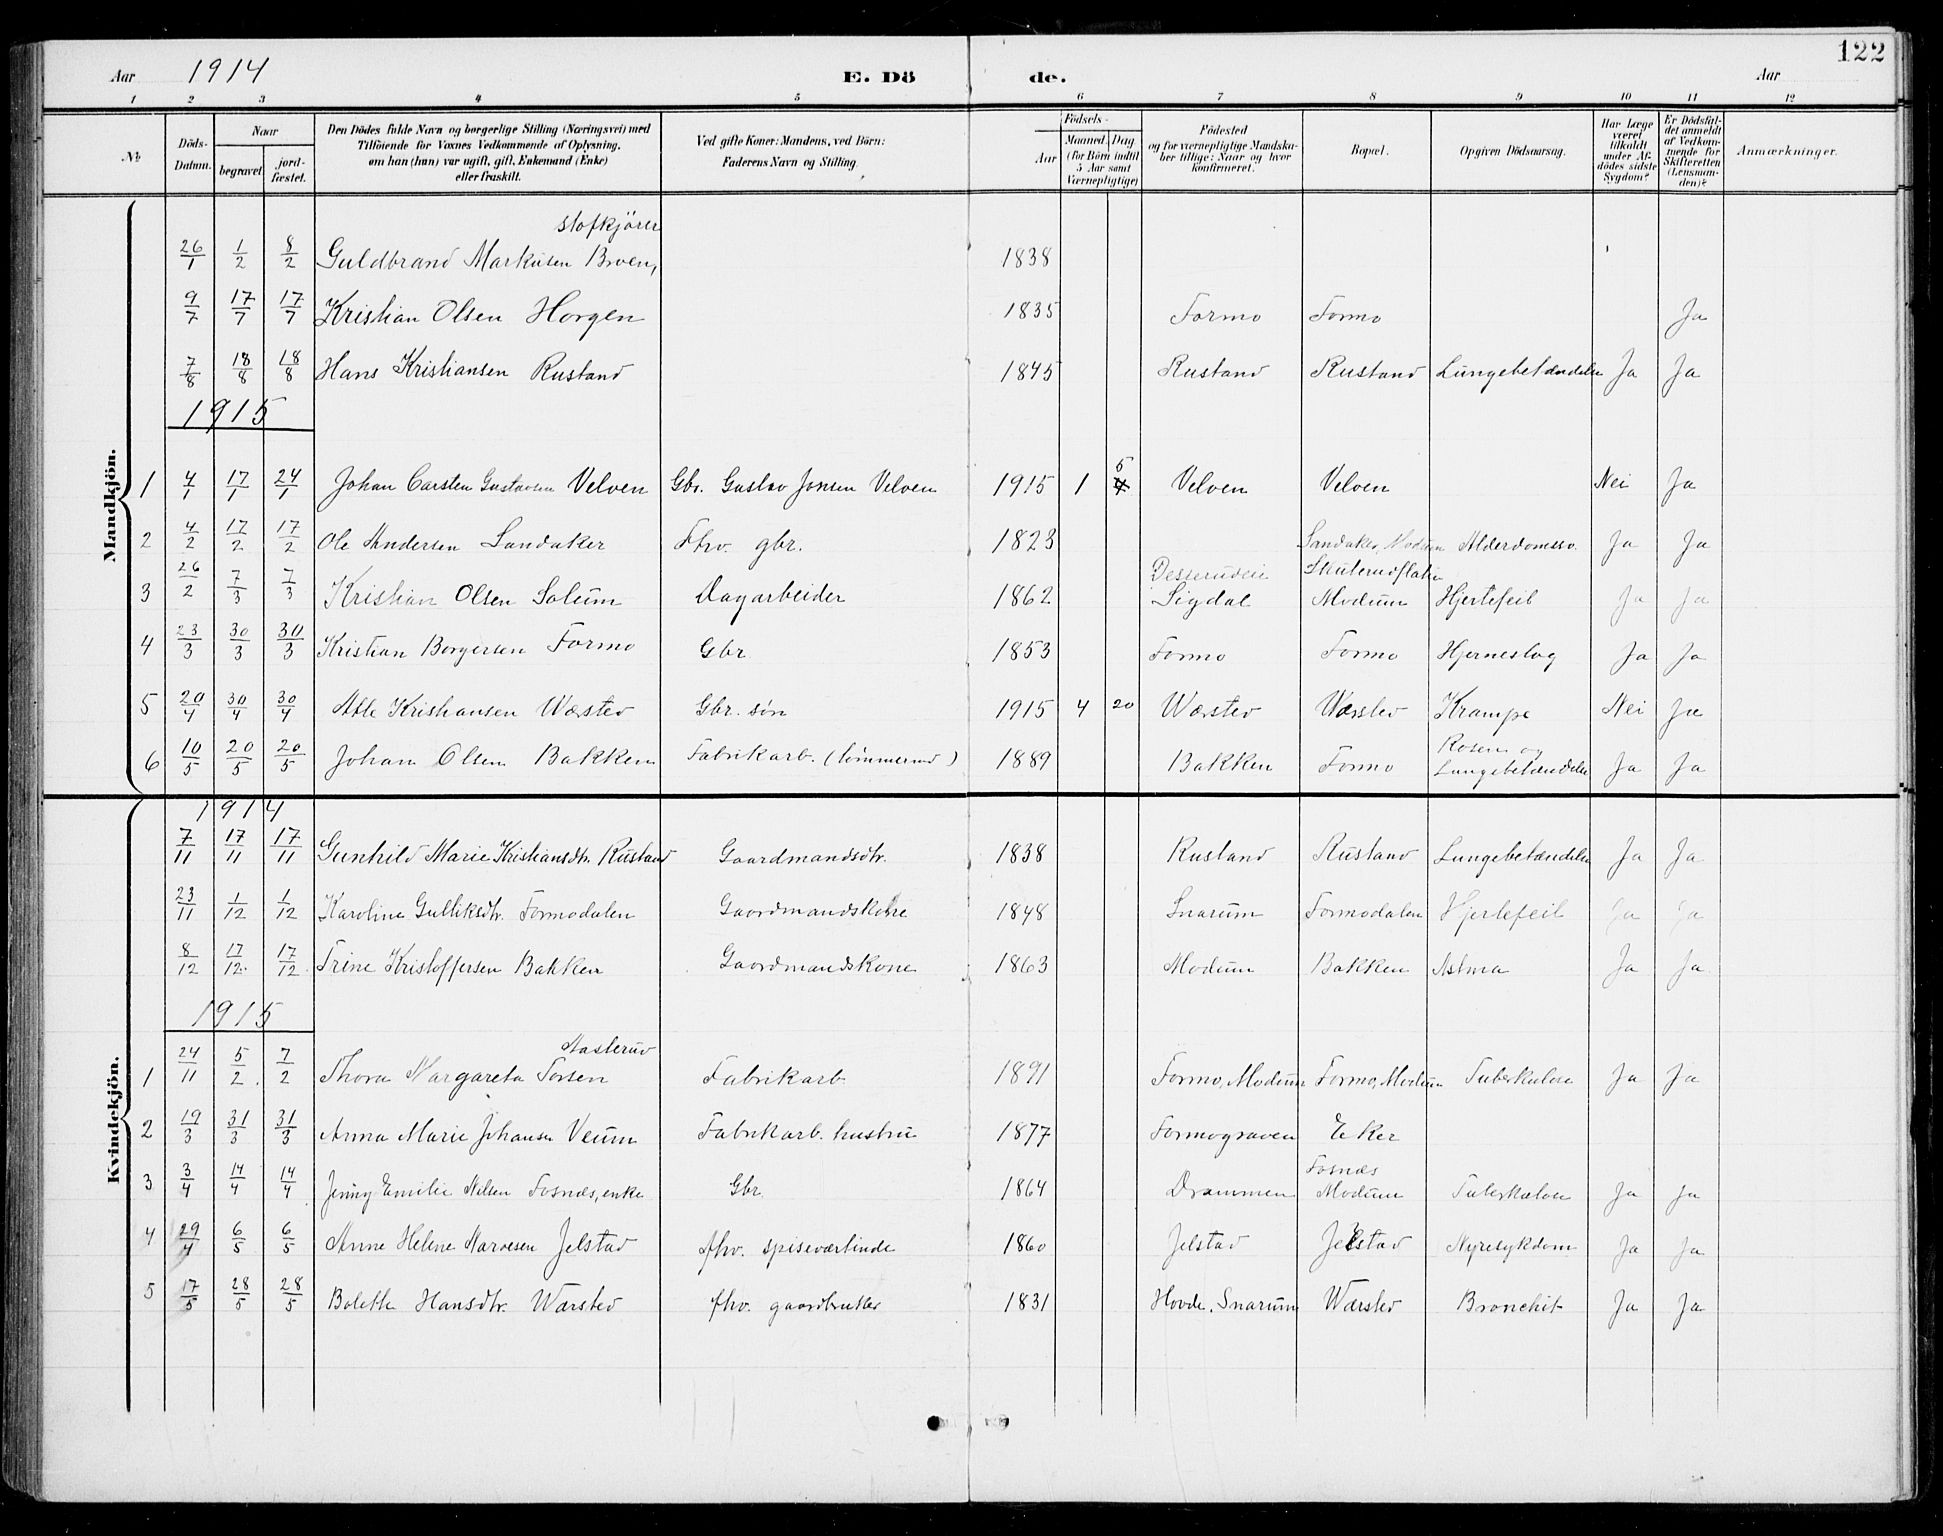 122
Aar 1914 E. Dö de. Aar
1 2 3 4 5 6 7 8 9 10 11 12
№ Döds-Datum. Naar begravet jordfæstet. Den Dödes fulde Navn og borgerlige Stilling (Næringsvei) med Tilföiende for Voxnes Vedkommende af Oplysning, om han (hun) var ugift, gift, Enkemand (Enke) eller fraskilt. Ved gifte Koner: Mandens, ved Börn: Faderens Navn og Stilling. Födsels- Aar Maaned Dag (for Börn indtil 5 Aar samt Værnepligtige) Födested og for værnepligtige Mandskaber tillige: Naar og hvor konfirmeret. Bopæl. Opgiven Dödsaarsag. Har Læge været tilkaldt under Afdödes sidste Sygdom? Er Dödsfaldet anmeldt af Vedkommende for Skifteretten (Lensmanden)? Anmærkninger.
Mandkjön.
stofkjörer
26/1 1/2 8/2 Guldbrand Markusen Broen, 1838
9/7 17/7 17/7 Kristian Olsen Horgen 1835 Formo Formo Ja
7/8 18/8 18/8 Hans Kristiansen Rustand 1845 Rustand Rustand Lungebetændelse Ja Ja
1915
1 4/1 17/1 24/1 Johan Carsten Gustavsen Velven Gbr. Gustav Jonsen Velven 1915 1 5 Velven Velven Nei Ja
2 4/2 17/2 17/2 Ole Andersen Sandaker Fhv. gbr. 1823 Sandaker, Modum Alderdomssv. Ja Ja
3 26/2 7/3 7/3 Kristian Olsen Solum Dagarbeider 1862 Desserudeie Sigdal Skuterudflata Modum Hjertefeil Ja Ja
4 23/3 30/3 30/3 Kristian Borgersen Formo Gbr. 1853 Formo Formo Hjerneslag Ja Ja
5 20/4 30/4 30/4 Atle Kristiansen Wærsted Gbr. sön 1915 4 20 Wærsted Wærsted Krampe Nei Ja
6 10/5 20/5 20/5 Johan Olsen Bakken Fabrikarb. (tömmerud) 1889 Bakken Formo Rosen og Lungebetændelse Ja Ja
Kvindekjön.
1914
7/11 17/11 17/11 Gunhild Marie Kristiansdtr. Rustand Gaardmandsdtr. 1838 Rustand Rustand Lungebetændelse Ja Ja
23/11 1/12 1/12 Karoline Gulliksdtr. Formodalen Gaardmandskone 1848 Snarum Formodalen Hjertefeil Ja Ja
8/12 17/12. 17/12. Trine Kristoffersen Bakken Gaardmandskone 1863 Modum Bakken Astma Ja Ja
1915
Aasterud
1 24/11 5/2 7/2 Thora Margareta Torsen Fabrikarb. 1891 Formo, Modum Formo, Modum Tuberkulose Ja Ja
2 19/3 31/3 31/3 Anna Marie Johansen Veum Fabrikarb. hustru 1877 Formograven Eker
3 3/4 14/4 14/4 Jenny Emilie Nilsen Fosnæs, enke Gbr. 1864 Drammen Fosnæs Modum Tuberkulose Ja Ja
4 29/4 6/5 6/5 Anne Helene Narvesen Jelstad fhv. spiseværtinde 1860 Jelstad Jelstad Nyresykdom Ja Ja
5 17/5 28/5 28/5 Bolette Hansdtr. Wærsted fhv. gaardbruker 1831 Hovde, Snarum Wærsted Bronchit Ja Ja